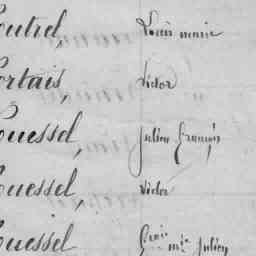 outrel, Louis marie
ortais, Victor
ouessel, Julien François
ouessel, Victor
ouessel Julien